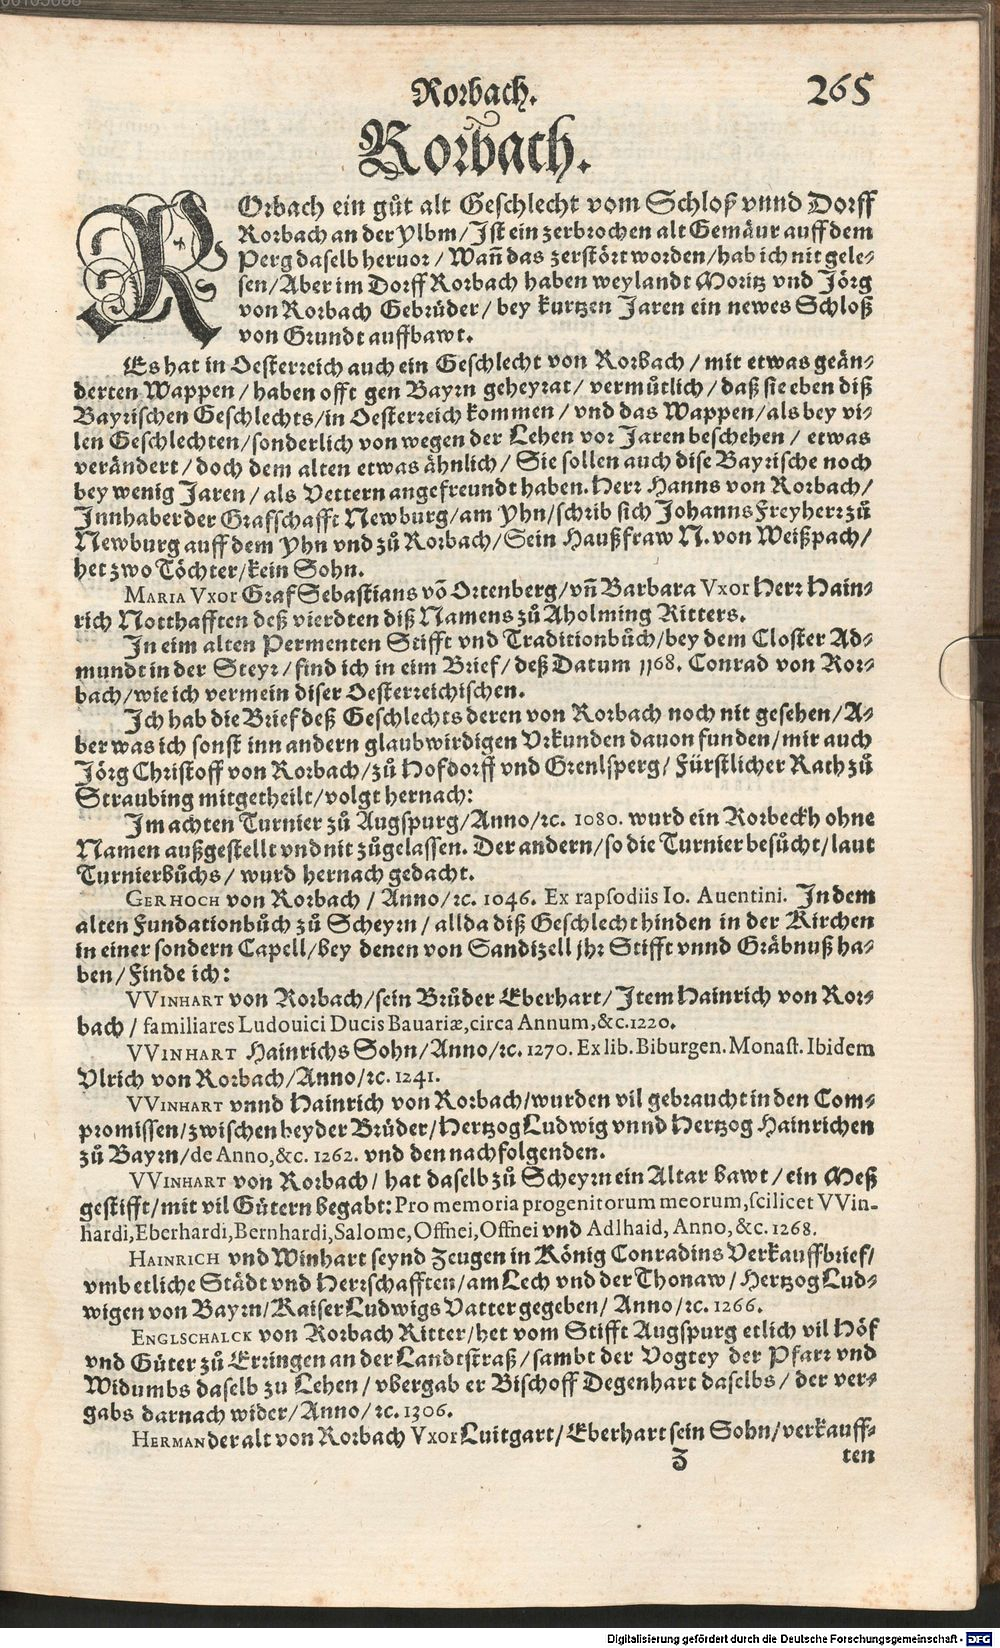 Rorbach. 265
Rorbach.
ROrbach ein gůt alt Geschlecht vom Schloß vnnd Dorff
Rorbach an der Ylbm/ Ist ein zerbrochen alt Gemäur auff dem
Perg daselb heruor/ Wañ das zerstört worden/ hab ich nit gele-
sen/ Aber im Dorff Rorbach haben weylandt Moritz vnd Jörg
von Rorbach Gebrüder/ bey kurtzen Jaren ein newes Schloß
von Grundt auffbawt.
Es hat in Oesterreich auch ein Geschlecht von Rorbach/ mit etwas geän-
derten Wappen/ haben offt gen Bayrn geheyrat/ vermůtlich/ daß sie eben diß
Bayrischen Geschlechts/ in Oesterreich kommen/ vnd das Wappen/ als bey vi-
len Geschlechten/ sonderlich von wegen der Lehen vor Jaren beschehen/ etwas
verändert/ doch dem alten etwas ähnlich/ Sie sollen auch dise Bayrische noch
bey wenig Jaren/ als Vettern angefreundt haben. Herr Hanns von Rorbach/
Innhaber der Grafschafft Newburg/ am Yhn/ schrib sich Johanns Freyherr zů
Newburg auff dem Yhn vnd zů Rorbach/ Sein Haußfraw N. von Weißpach/
het zwo Töchter/ kein Sohn.
MARIA Vxor Graf Sebastians võ Ortenberg/ vñ Barbara Vxor Herr Hain-
rich Notthafften deß vierdten diß Namens zů Aholming Ritters.
In eim alten Permenten Stifft vnd Traditionbůch/ bey dem Closter Ad-
mundt in der Steyr/ find ich in eim Brief/ deß Datum 1168. Conrad von Ror-
bach/ wie ich vermein diser Oesterreichischen.
Ich hab die Brief deß Geschlechts deren von Rorbach noch nit gesehen/ A-
ber was ich sonst inn andern glaubwirdigen Vrkunden dauon funden/ mir auch
Jörg Christoff von Rorbach/ zů Hofdorff vnd Grenlsperg/ Fürstlicher Rath zů
Straubing mitgetheilt/ volgt hernach:
Im achten Turnier zů Augspurg/ Anno/ ꝛc. 1080. wurd ein Rorbeckh ohne
Namen außgestellt vnd nit zůgelassen. Der andern/ so die Turnier besůcht/ laut
Turnierbůchs/ wurd hernach gedacht.
GERHOCH von Rorbach/ Anno/ ꝛc. 1046. Ex rapsodiis Io. Auentini. In dem
alten Fundationbůch zů Scheyrn/ allda diß Geschlecht hinden in der Kirchen
in einer sondern Capell/ bey denen von Sandizell jhr Stifft vnnd Gräbnuß ha-
ben/ Finde ich:
VVINHART von Rorbach/ sein Brůder Eberhart/ Item Hainrich von Ror-
bach/ familiares Ludouici Ducis Bauariæ, circa Annum, &c. 1220.
VVINHART Hainrichs Sohn/ Anno/ ꝛc. 1270. Ex lib. Biburgen. Monast. Ibidem
Vlrich von Rorbach/ Anno/ ꝛc. 1241.
VVINHART vnnd Hainrich von Rorbach/ wurden vil gebraucht in den Com-
promissen/ zwischen beyder Brüder/ Hertzog Ludwig vnnd Hertzog Hainrichen
zů Bayrn/ de Anno, &c. 1262. vnd den nachfolgenden.
VVINHART von Rorbach/ hat daselb zů Scheyrn ein Altar bawt/ ein Meß
gestifft/ mit vil Gütern begabt: Pro memoria progenitorum meorum, scilicet VVin-
hardi, Eberhardi, Bernhardi, Salome, Offnei, Offnei vnd Adlhaid, Anno, &c. 1268.
HAINRICH vnd Winhart seynd Zeugen in König Conradins Verkauffbrief/
vmb etliche Städt vnd Herrschafften/ am Lech vnd der Thonaw/ Hertzog Lud-
wigen von Bayrn/ Kaiser Ludwigs Vatter gegeben/ Anno/ ꝛc. 1266.
ENGLSCHALCK von Rorbach Ritter/ het vom Stifft Augspurg etlich vil Höf
vnd Güter zů Erringen an der Landtstraß/ sambt der Vogtey der Pfarr vnd
Widumbs daselb zu Lehen/ vbergab er Bischoff Degenhart daselbs/ der ver-
gabs darnach wider/ Anno/ ꝛc. 1306.
HERMAN der alt von Rorbach Vxor Luitgart/ Eberhart sein Sohn/ verkauff-
Z ten
Digitalisierung gefördert durch die Deutsche Forschungsgemeinschaft - DFG